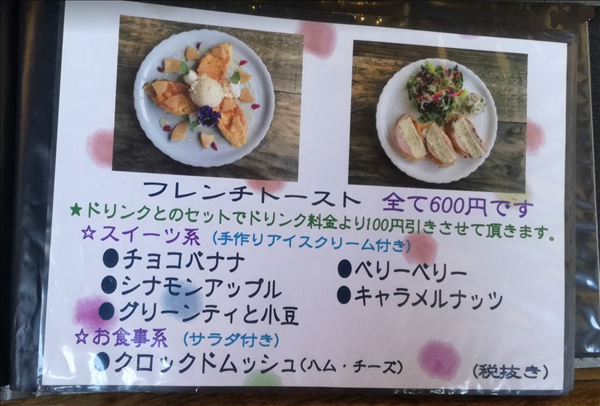 フレンチトースト 全て600円です
★ドリンクとのセットでドリンク料金より100円引きさせて頂きます。
☆スイーツ系(手作りアイスクリーム付き)
●チョコバナナ ●ベリーベリー
●シナモンアップル ●キャラメルナッツ
●グリーンティと小豆
☆お食事系(サラダ付き)
●クロックドムッシュ(ハム・チーズ) (税抜き)